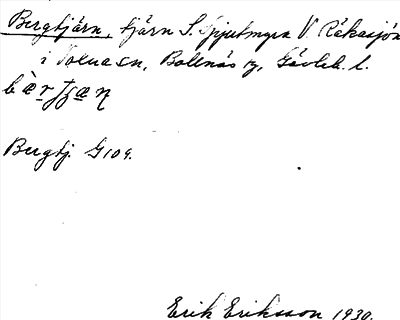 Bergtjärn, tjärn S. Spjutmyra V. Råkasjön
i Voxna sn, Bollnäs tg, Gävleb. l.
Bergtj. G 109.
Erik Eriksson 1930.